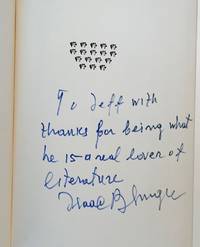 To Jeff with
thanks for being what
he is a real lover of
literature
Isaac B Singer